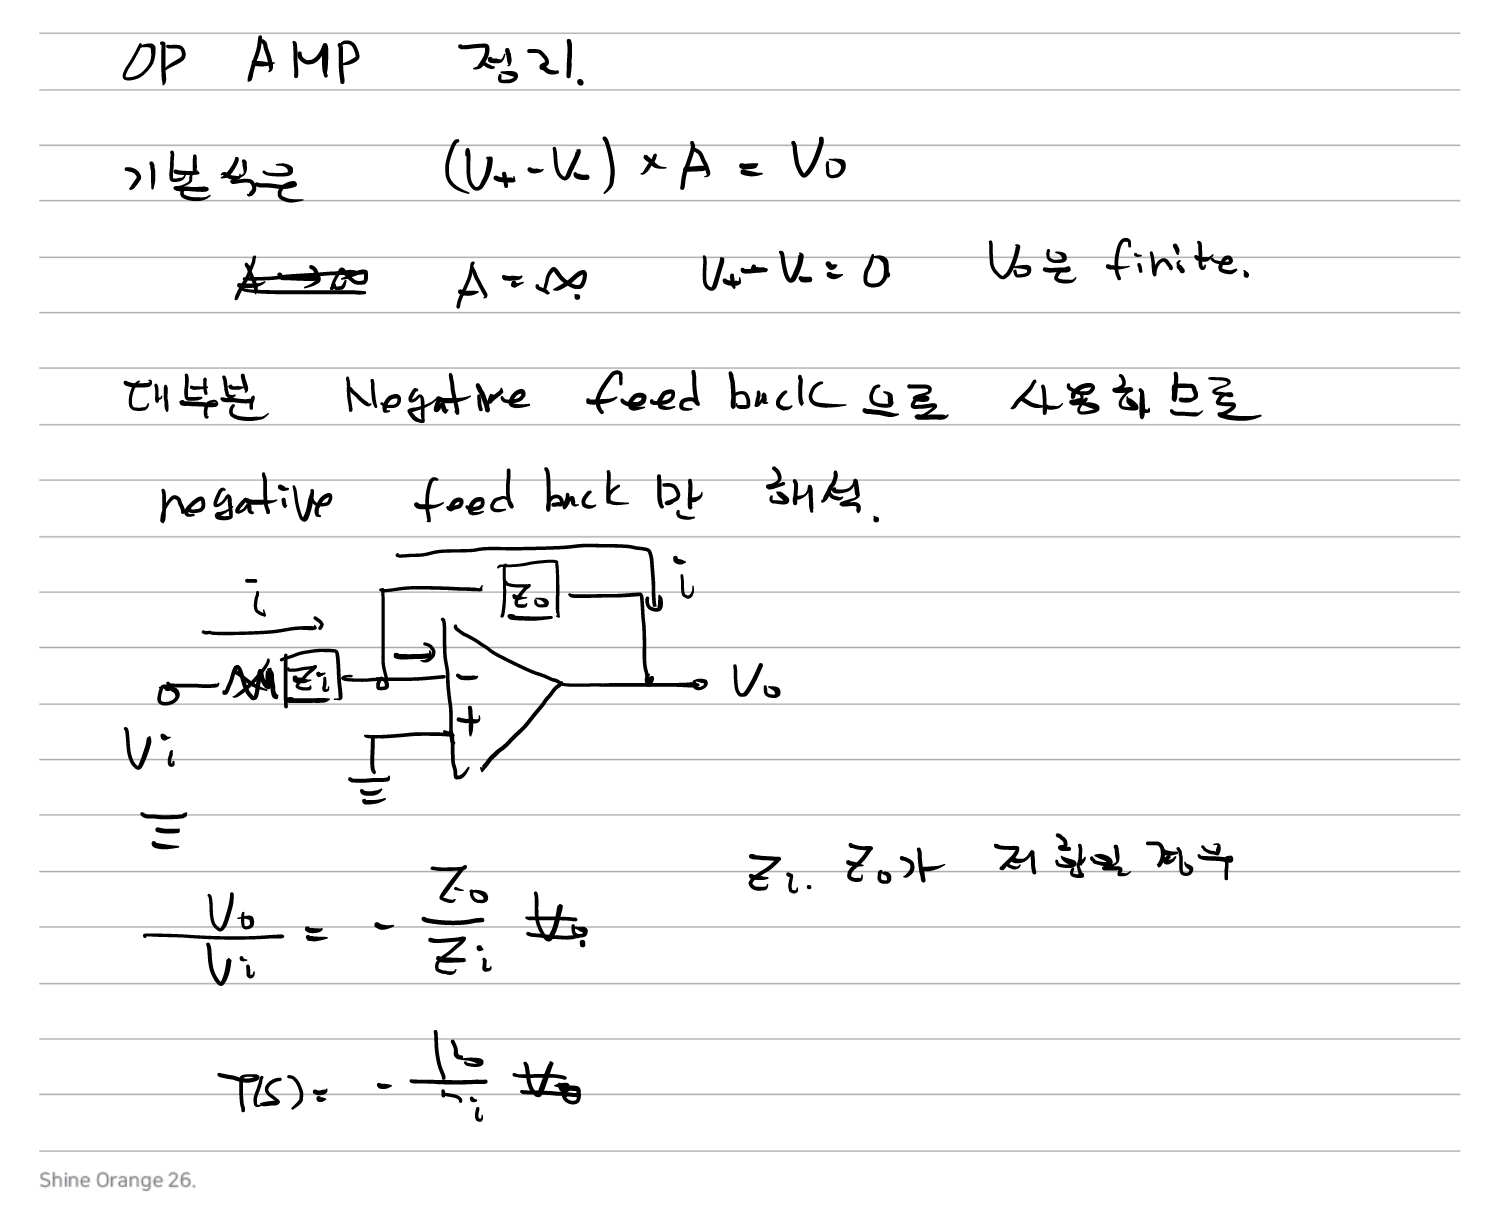 OP AMP 정리.
기본식은 (V+ - V-) × A = Vo
A = ∞. V+ - V- = 0 Vo은 finite.
대부분 Negative feed back으로 사용하므로
negative feed back만 해석.
i
i
Zo
Zi
-
+
Vo
Vi
Zi. Zo가 저항일 경우
Vo/Vi = - Zo/Zi
T(S) = -
Shine Orange 26.